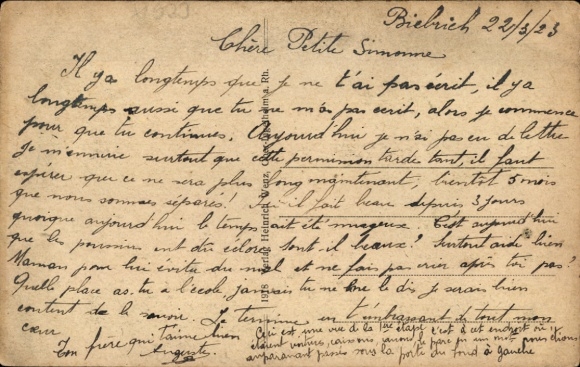 Biebrich 22/3/23
Chère Petite Simonne
Il y a longtemps que je ne t'ai pas écrit, il y a
longtemps aussi que tu ne m'as pas écrit, alors je commence
pour que tu continues. Aujourd'hui je n'ai pas eu de lettre
Je m'ennuie surtout que cette permission tarde tant, il faut
espérer que ce ne sera plus long maintenant, bientôt 5 mois
que nous sommes séparés! Ici il fait beau depuis 3 jours
quoique aujourd'hui le temps ait été nuageux. C'est aujourd'hui
que les poussins ont du éclore sont-il beaux? Surtout aide bien
Maman pour lui éviter du mal et ne fais pas crier après toi pas?
Quelle place as-tu à l'école jamais tu ne me le dis, je serais bien
content de le savoir. Je termine en t'embrassant de tout mon
cœur
Ton frère qui t'aime bien
Auguste.
Ceci est une vue de la 1ère étape c'est à cet endroit où
étaient voitures, caissons, canons, le parc en un mot, nous étions
auparavant passés sous la porte du fond à gauche
1978 Verlag Heinrich a. Rh.